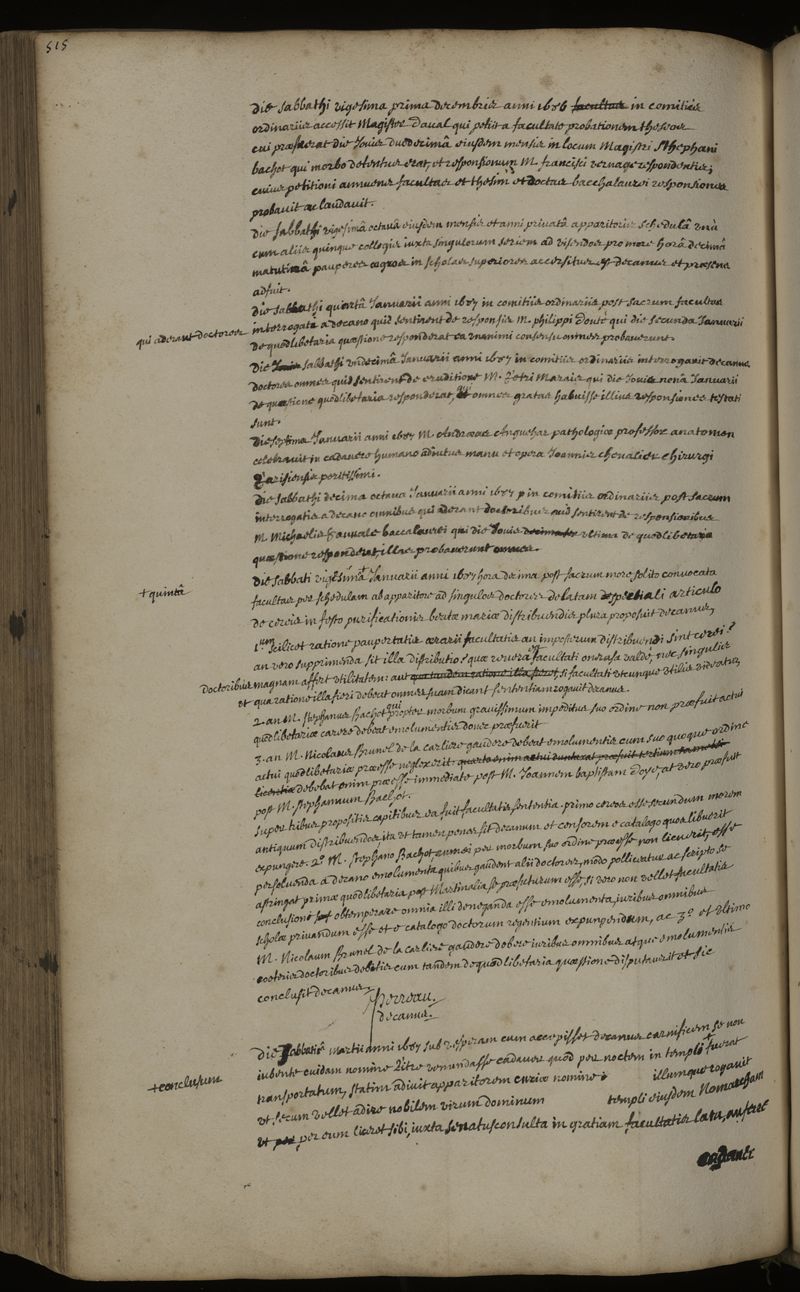 515
Die sabbathi vigesima prima decembris anni 1686 facultas in comitiis
ordinariis accessit Magister Daval qui petiit a facultate probationem theseos
cui præfuerat die Jovis duodecimâ eiusdem mensis in locum Magistri Stephani
bachot qui morbo detentus erat, et responsionum M. francisci vernage respondentis;
cuius petitioni annuens facultas et thesim et doctas bacchalaurei responsiones
probavit ac laudavit.
Die sabbathi vigesimâ octavâ eiusdem mensis et anni privatâ apparitoris schedulâ unà
cum aliis quinque collegis iuxta singulorum seriem ad visendos pro more horâ decimâ
matutinâ pauperes ægros in scholas superiores accersitus est decanus et præsens
adfuit.
Die sabbathi quartâ Januarii anni 1687 in comitiis ordinariis post sacrum facultas
qui aderant doctores
interrogata a decano quid sentirent de responsis M. philippi Douté qui die secunda Januarii
de quodlibetaria quæstione responderat ea unanimi consensu omnes probaverunt.
Die Jovis sabbathi undecimâ Januarii anni 1687 in comitiis ordinariis interrogavit decanus
doctores omnes quid sentirent de eruditione M. Petri Marais qui die Jovis nona Januarii
de quæstione quodlibetaria responderat, qui omnes gratas habuisse illius responsiones testati
sunt.
Die septima Januarii anni 1687 M. Andræas Enguehar pathologiæ professor anatomen
celebravit in cadavere humano adiutus manu et opera Joannis chevalier chirurgi
Parisiensis peritissimi.
Die sabbathi decima octava Januarii anni 1687 in comitiis ordinariis post sacrum
interrogatis a decano omnibus qui aderant doctoribus quid sentirent de responsionibus
M. Michaelis baccalaurei qui die Jovis ultima de quodlibetaria
quæstione responderat, illas probaverunt omnes.
+ quintâ
Die sabbati vigesima + Januarii anni 1687 hora decima post sacrum more solito convocata
facultas per schedulam ab apparitore ad singulos doctores delatam speciali articulo
de cereis in festo purificationis beatæ mariæ distribuendis plura proposuit decanus,
1um scilicet ratione paupertatis ærarii facultatis an imposterum distribuendi sint cerei?
an vero supprimenda sit illa distributio? quæ revera facultati onerosa valdè, nec singulis
Doctoribus magnam affert utilitatem: aut qua tandem ratione illa fieret, si facultati utcunque utilis videatur,
et qua ratione illa fieri debeat omnes suam dicant sententiam rogavit decanus.
2. an M. Stephanus Bachot qui propter morbum gravissimum impeditus suo ordine non præfuit actui
quodlibetariæ carere debeat emolumentis donec præfuerit
3. an M. Nicolaus Brunel de la carliere gaudere debeat emolumentis cum suo quoque ordine
actui quodlibetariæ præesse neglexerit
debebat enim præesse immediate post M. Joannem baptistam Doye, at vero præfuit
post M. Stephanum Bachot.
Super tribus propositis capitibus ea fuit facultatis sententia. primo cereos esse secundum morem
antiquum distribuendos, ita ut tamen penes sit decanum et censorem e catalogo quos libuerit
expungere. 2º M. Stephano Bachot cum ei per morbum suo ordine præesse non licuerit, esse
persolvenda a decano emolumenta quibus gaudent alii doctores, modo polliceatur ac scripto se
astringat primæ quodlibetariæ post Martinalia se præfuturum esse, si vero non vellet facultatis
conclusioni obtemperare omnia illi deneganda esse emolumenta, iuribus omnibus
scholæ privandum esse et e catalogo doctorum regentium expungendum, ac 3º et ultimo
M. Nicolaum Brunel de la carliere gaudere debere iuribus omnibus atque emolumentis
cæteris doctoribus debitis cum tandem de quodlibetaria quæstione disputaverit et sic
conclusit decanus
Perreau.
decanus.
Die sabbati martii anni 1687 sub vesperam cum accepisset decanus carnificem se non
+ conclusum
iubente cuidam nomine Litre venundasse cadaver quod per noctem in templi + fuerat
transportatum, statim adivit apparitorem curiæ nomine illumque rogavit
ut secum vellet adire nobilem virum dominum templi eiusdem Nomarcham
ut per eum liceret sibi, iuxta senatusconsulta in gratiam facultatis lata, auferre